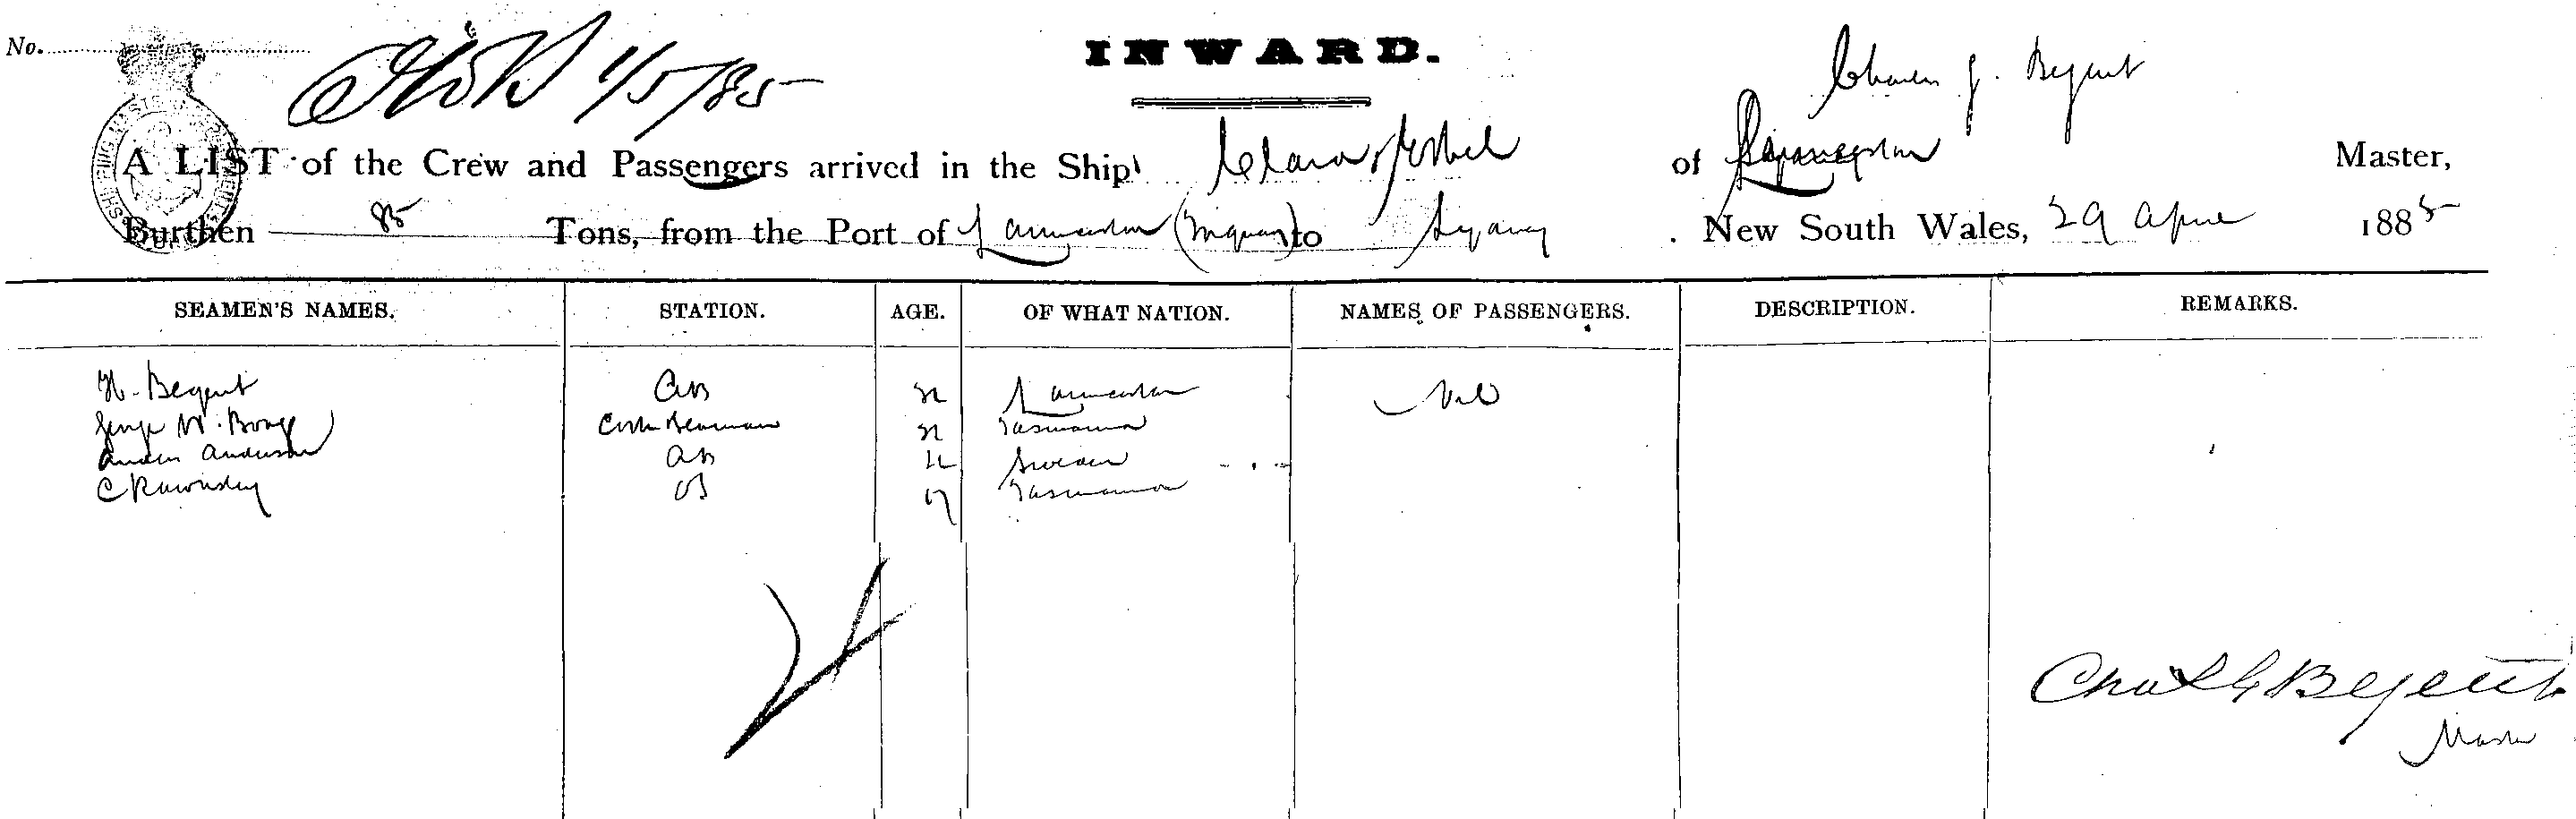 No.
1/5/85
INWARD.
Charles G. Begent
A LIST of the Crew and Passengers arrived in the Ship Clara of Launceston Master,
Burthen 85 Tons, from the Port of Launceston to Sydney New South Wales, 29 April 1885
SEAMEN'S NAMES. STATION. AGE. OF WHAT NATION. NAMES OF PASSENGERS. DESCRIPTION. REMARKS.
H. Begent AB Launceston Nil
George W. Cook Seaman Tasmania
Anderson AB Sweden
C Rawnsley OS 17 Tasmania
Chas G Begent
Master